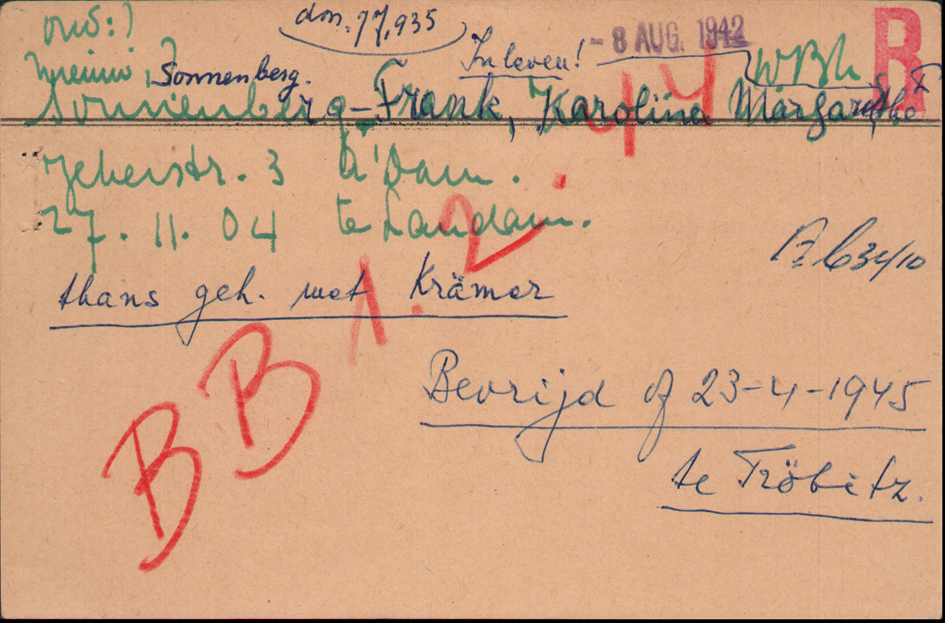 ons:)
don. 77,935
In leven!
- 8 AUG. 1942
R
Sonnenberg.
WBh
Sonnenberg-Frank, Karolina Margarethe
3 A'Dam.
27. 11. 04 te Landau.
thans geh. met Krämer
BB 1.2.
Bevrijd op 23-4-1945
te Tröbitz.